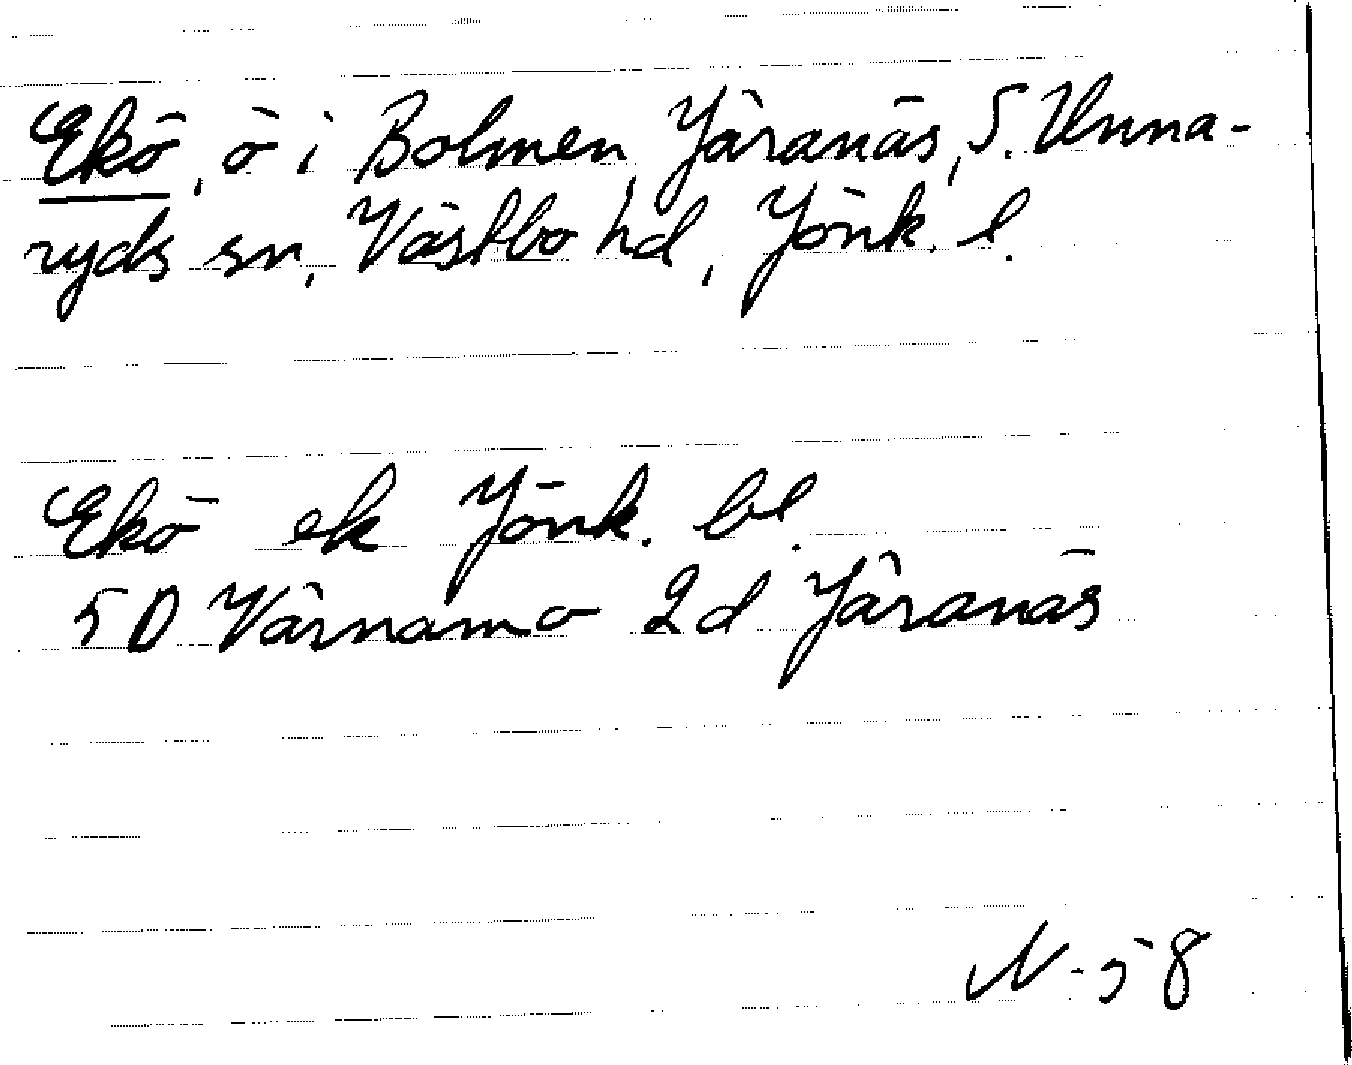 Ekö, ö i Bolmen, Järanäs, S. Unna-
ryds sn, Västbo hd, Jönk. l.
Ekö ek Jönk. bl.
5D Värnamo 2d Järanäs
N-58